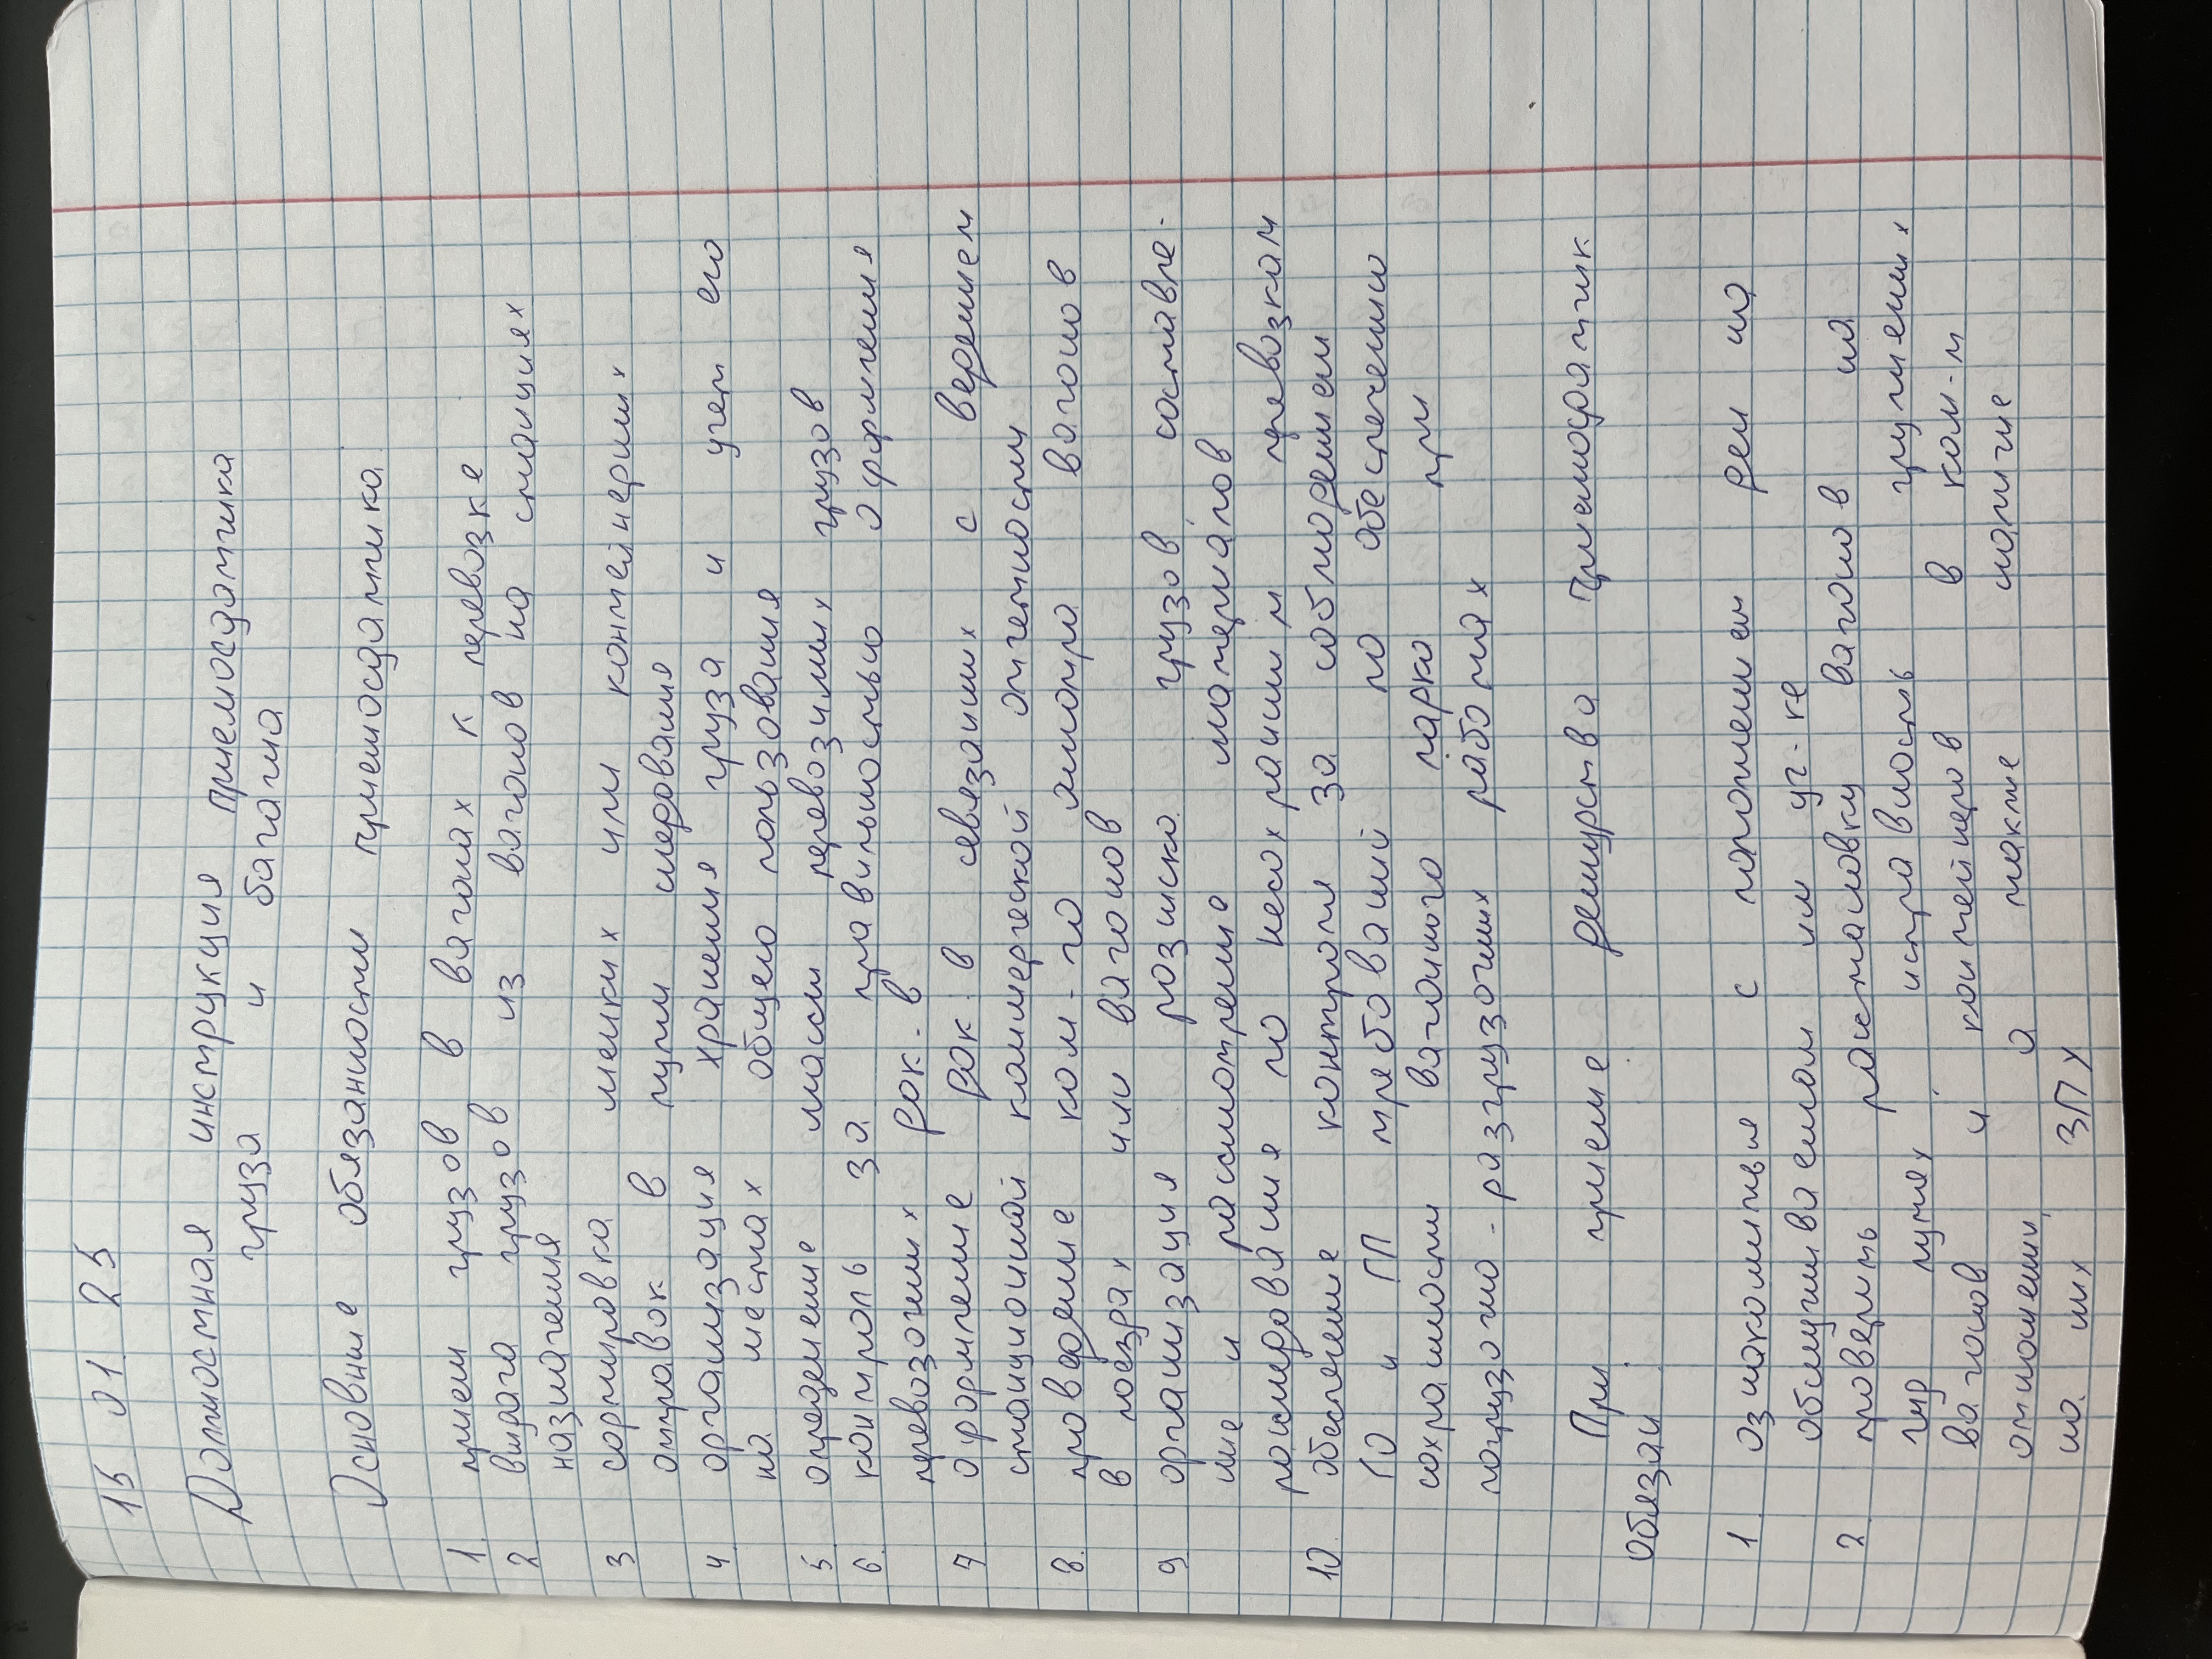 15 01 25
Должностная инструкция приемосдатчика
груза и багажа
Основные обязанности приемосдатчика
1 прием грузов в вагонах к перевозке
2 выдача грузов из вагонов на станциях
назначения
3 сортировка мелких или контейнерных
отправок в пути следования
4 организация хранения груза и учет его
на местах общего пользования
5 определение массы перевозимых грузов
6 контроль за правильностью оформления
перевозочных док-в
7 оформление док-в связанных с ведением
станционной коммерческой отчетности
8. проведение ком-го осмотра вагонов
в поездах или вагонов
9 организация розыска грузов составле-
ние и рассмотрение материалов
расследования по несохранным перевозкам
10 обеспечение контроля за соблюдением
ГО и ГП требований по обеспечению
сохранности вагонного парка при
погрузочно-разгрузочных работах
При приеме дежурства приемосдатчик
обязан
1 ознакомится с положением дел на
обслуживаемом им уч-ке
2 проверить расстановку вагонов на
путях исправность груженых
вагонов и контейнеров в ком-м
отношении, а также наличие
на них ЗПУ